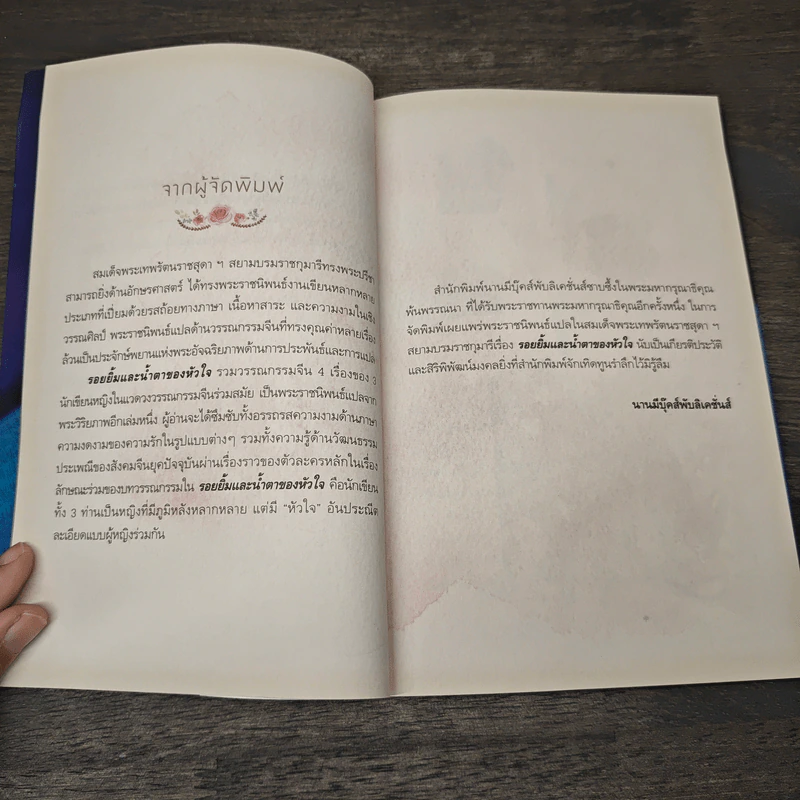 จากผู้จัดพิมพ์
สมเด็จพระเทพรัตนราชสุดา ฯ สยามบรมราชกุมารีทรงพระปรีชา
สามารถยิ่งด้านอักษรศาสตร์ ได้ทรงพระราชนิพนธ์งานเขียนหลากหลาย
ประเภทที่เปี่ยมด้วยรสถ้อยทางภาษา เนื้อหาสาระ และความงามในเชิง
วรรณศิลป์ พระราชนิพนธ์แปลด้านวรรณกรรมจีนที่ทรงคุณค่าหลายเรื่อง
ล้วนเป็นประจักษ์พยานแห่งพระอัจฉริยภาพด้านการประพันธ์และการแปล
รอยยิ้มและน้ำตาของหัวใจ รวมวรรณกรรมจีน 4 เรื่องของ 3
นักเขียนหญิงในแวดวงวรรณกรรมจีนร่วมสมัย เป็นพระราชนิพนธ์แปลจาก
พระวิริยภาพอีกเล่มหนึ่ง ผู้อ่านจะได้ซึมซับทั้งอรรถรสความงามด้านภาษา
ความงดงามของความรักในรูปแบบต่างๆ รวมทั้งความรู้ด้านวัฒนธรรม
ประเพณีของสังคมจีนยุคปัจจุบันผ่านเรื่องราวของตัวละครหลักในเรื่อง
ลักษณะร่วมของบทวรรณกรรมใน รอยยิ้มและน้ำตาของหัวใจ คือนักเขียน
ทั้ง 3 ท่านเป็นหญิงที่มีภูมิหลังหลากหลาย แต่มี “หัวใจ” อันประณีต
ละเอียดแบบผู้หญิงร่วมกัน
สำนักพิมพ์นานมีบุ๊คส์พับลิเคชั่นส์ซาบซึ้งในพระมหากรุณาธิคุณ
พ้นพรรณนา ที่ได้รับพระราชทานพระมหากรุณาธิคุณอีกครั้งหนึ่ง ในการ
จัดพิมพ์เผยแพร่พระราชนิพนธ์แปลในสมเด็จพระเทพรัตนราชสุดา ฯ
สยามบรมราชกุมารีเรื่อง รอยยิ้มและน้ำตาของหัวใจ นับเป็นเกียรติประวัติ
และสิริพิพัฒน์มงคลยิ่งที่สำนักพิมพ์จักเทิดทูนรำลึกไว้มิรู้ลืม
นานมีบุ๊คส์พับลิเคชั่นส์